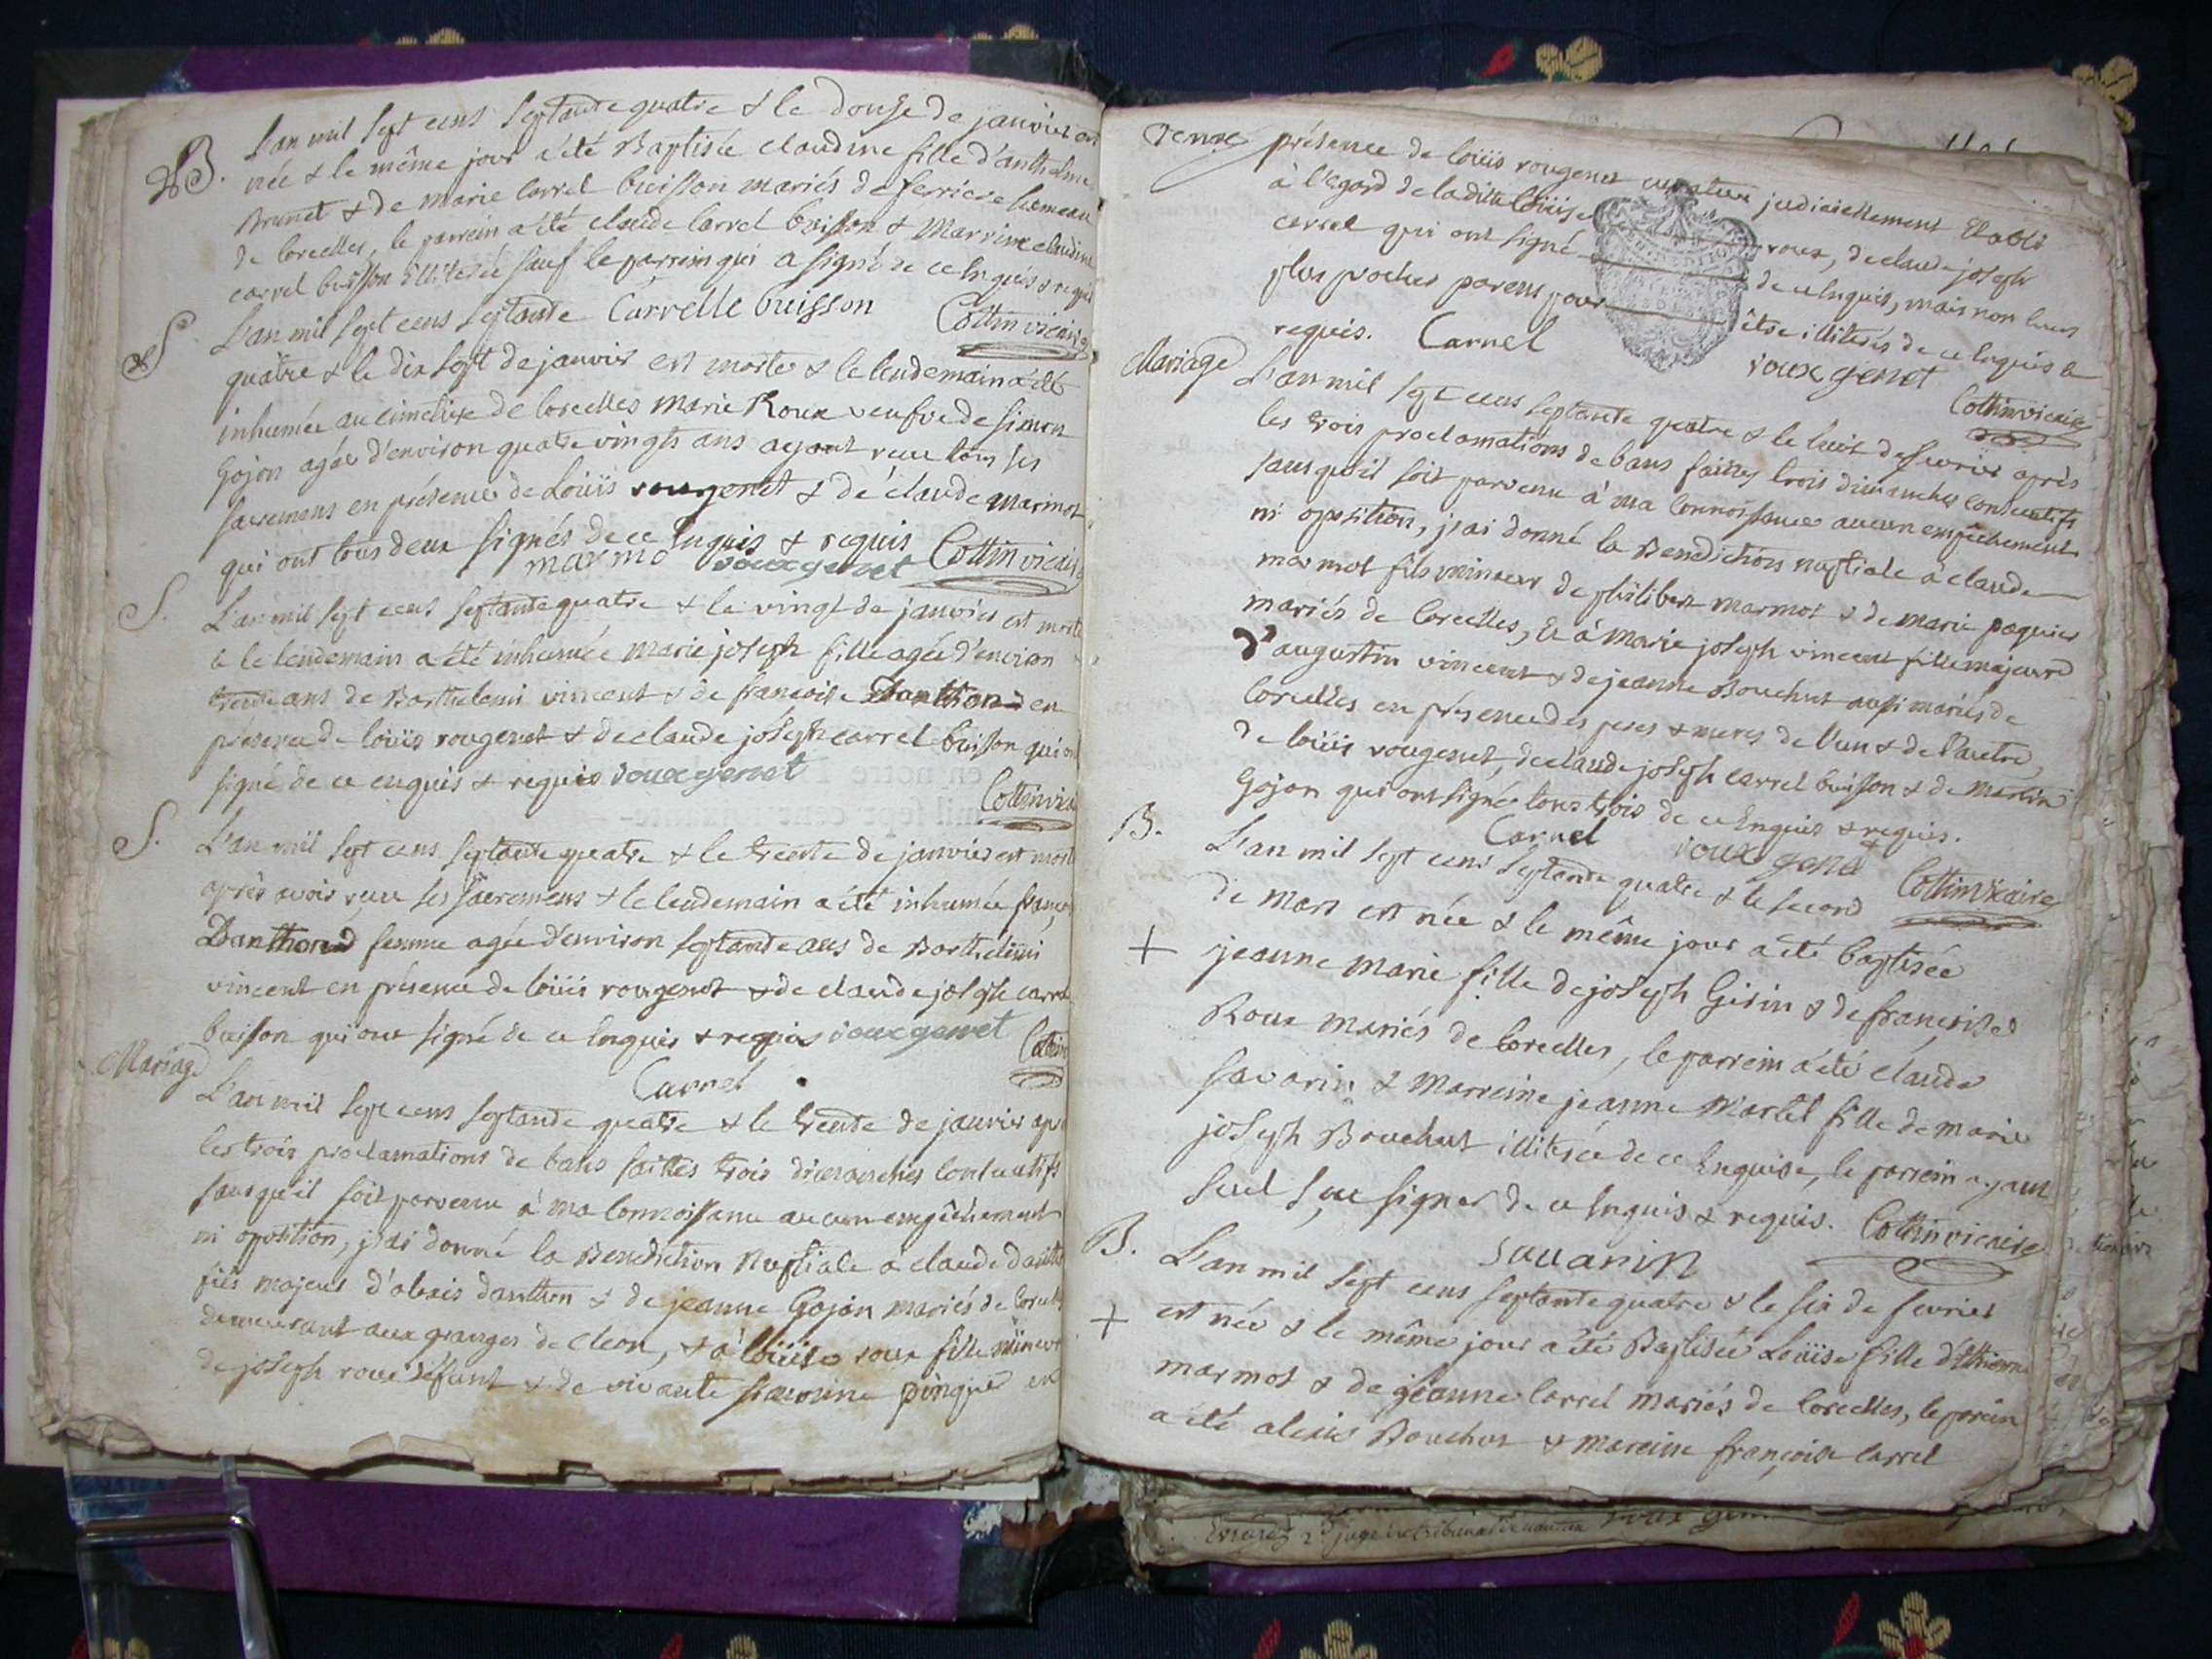 B. L'an mil sept cens septante quatre & le douze de janvier est
née & le même jour a été Baptisée claudine fille d'anthelme
Brunet & de marie carrel buisson mariés de ferriere hameau
de corcelles, le parrein a été claude carrel buisson & Marrine claudine
carrel buisson illiterée sauf le parrein qui a signé de ce enquis & requis
Carrelle buisson Cottin vicaire
S. L'an mil sept cens septante
quatre & le dix sept de janvier est morte & le lendemain a été
inhumée au cimetiere de corcelles marie Roux veufve de simon
Gojon agée d'environ quatre vingts ans ayant receu tous ses
sacremens en présence de Loüis rougenet & de claude marmot
qui ont tous deux signés de ce enquis & requis
marmo rouxgenet Cottin vicaire
S. L'an mil sept cens septante quatre & le vingt de janvier est morte
& le lendemain a été inhumée marie joseph fille agée d'environ
trente ans de Barthelemi vincent & de françoise Danthon en
présence de loüis rougenet & de claude joseph carrel buisson qui ont
signé de ce enquis & requis rouxgenet
Cottin vicaire
S. L'an mil sept cens septante quatre & le trente de janvier est morte
après avoir receu ses sacremens & le lendemain a été inhumée
Danthon femme agée d'environ septante ans de Barthelemi
vincent en présence de loüis rougenet & de claude joseph carrel
buisson qui ont signé de ce enquis & requis rouxgenet Cottin
Carrel
Mariage L'an mil sept cens septante quatre & le trente de janvier après
les trois proclamations de bans faittes trois dimanches consecutifs
sans qu'il soit parvenu à ma connoissance aucun empêchement
ni oposition, j'ai donné la Benediction Nuptiale a claude danthon
fils majeur d'alexis danthon & de jeanne Gojon mariés de corcelles
demeurant aux granges de cleon, & à loüise roux fille mineure
de joseph roux défunt & de vivante pingue en
présence de loüis rougenet curateur judiciellement Etabli
à l'egard de la ditte loüise roux, de claude joseph
carrel qui ont signé de ce enquis, mais non leurs
plus proches parens pour être illiterés de ce enquis &
requis. Carrel rouxgenet
Cottin vicaire
Mariage L'an mil sept cens septante quatre & le huit de fevrier après
les trois proclamations de bans faittes trois dimanches consecutifs
sans qu'il soit parvenu à ma connoissance aucun empêchement
ni oposition, j'ai donné la Benediction nuptiale à claude
marmot fils mineur de philibert marmot & de marie paquier
mariés de corcelles, & à marie joseph vincent fille majeure
d'augustin vincent & de jeanne Bouchut aussi mariés de
corcelles en présence des peres & meres de l'un & de l'autre,
de loüis rougenet, de claude joseph carrel buisson & de martin
Gojon qui ont signé tous trois de ce enquis & requis.
Carrel rouxgenet Cottin vicaire
B. L'an mil sept cens septante quatre & le second
de mars est née & le même jour a été baptisée
+ jeanne marie fille de joseph Girin & de françoise
Roux mariés de corcelles, le parrein a été claude
savarin & marreine jeanne Martel fille de marie
joseph Bouchut illiterée de ce enquise, le parrein ayant
seul sçu signer de ce enquis & requis. Cottin vicaire
savarin
B. L'an mil sept cens septante quatre & le six de fevrier
+ est née & le même jour a été Baptisée Loüise fille d'Ethienne
marmot & de jeanne carrel mariés de corcelles, le parein
a été alexis Bouchut & mareine françoise carrel